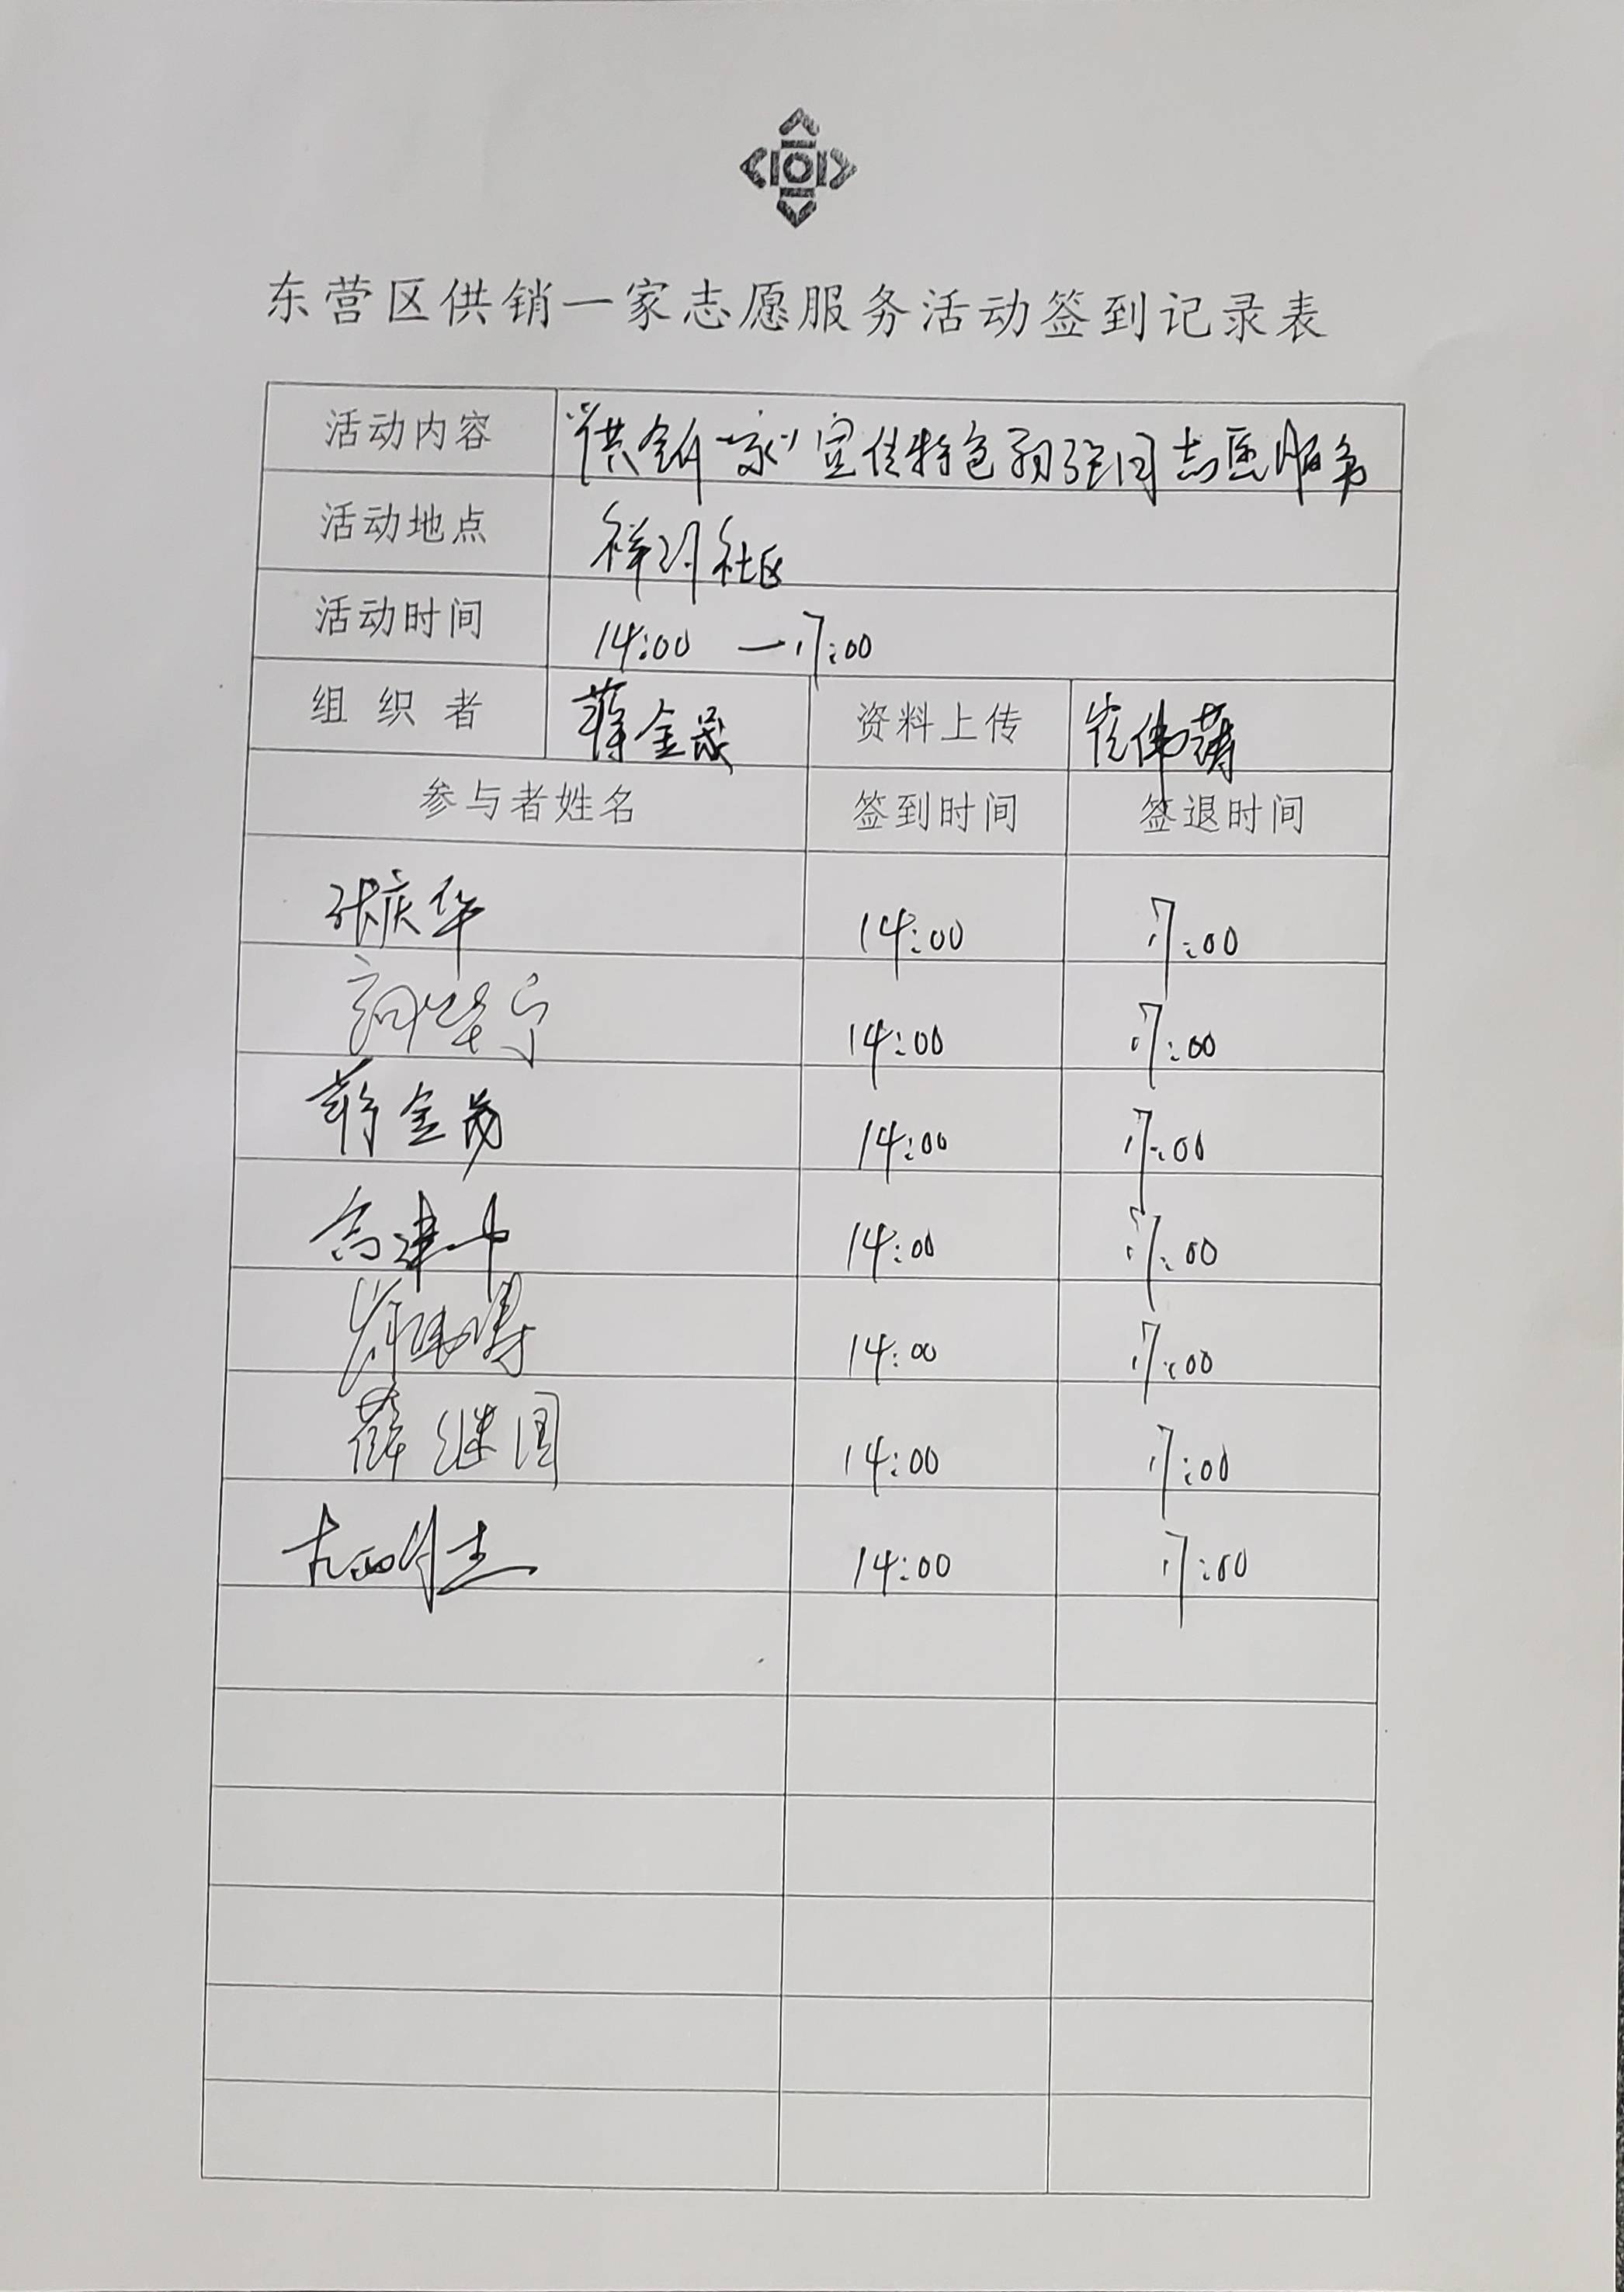 东营区供销一家志愿服务活动签到记录表
活动内容 “供销一家”宣传特色 志愿服务
活动地点 社区
活动时间 14:00 — 17:00
组织者 蒋金 资料上传 崔伟
参与者姓名 签到时间 签退时间
张庆华 14:00 17:00
14:00 17:00
蒋金 14:00 17:00
高建 14:00 17:00
14:00 17:00
薛继国 14:00 17:00
14:00 17:00